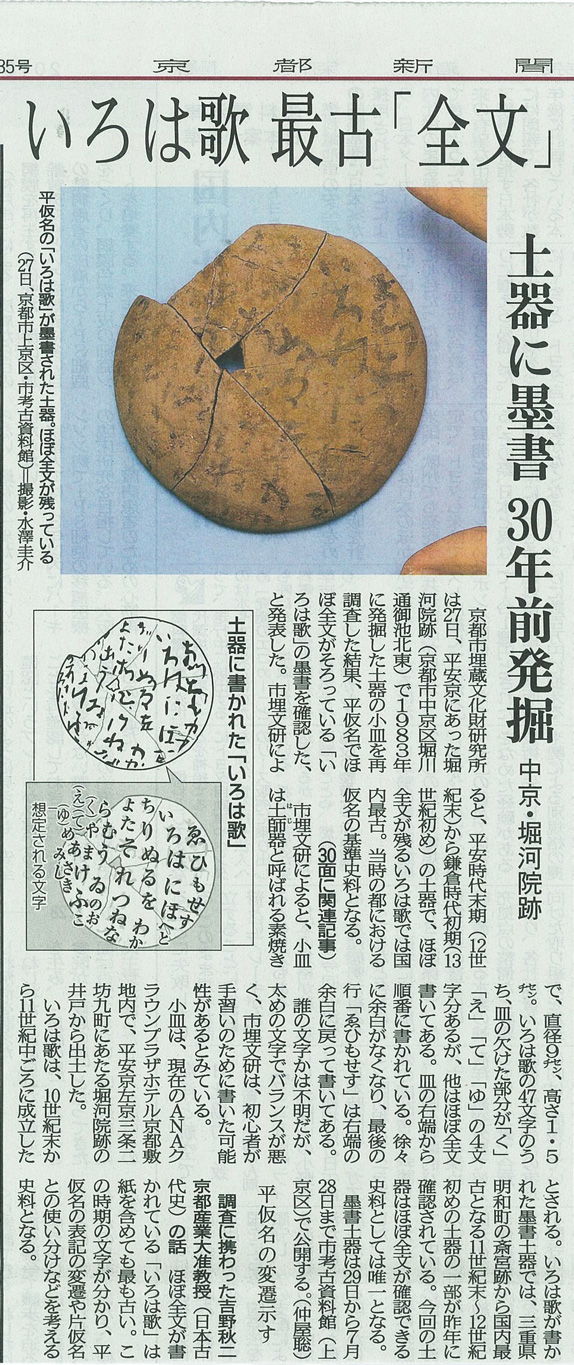 35号
京都新聞
いろは歌 最古「全文」
土器に墨書 30年前発掘
中京・堀河院跡
平仮名の「いろは歌」が墨書された土器。ほぼ全文が残っている
（27日、京都市上京区・市考古資料館）＝撮影・水澤圭介
京都市埋蔵文化財研究所
は27日、平安京にあった堀
河院跡（京都市中京区堀川
通御池北東）で1983年
に発掘した土器の小皿を再
調査した結果、平仮名でほ
ぼ全文がそろっている「い
ろは歌」の墨書を確認した、
と発表した。市埋文研によ
ると、平安時代末期（12世
紀末）から鎌倉時代初期（13
世紀初め）の土器で、ほぼ
全文が残るいろは歌では国
内最古。当時の都における
仮名の基準史料となる。
（30面に関連記事）
市埋文研によると、小皿
は土師器と呼ばれる素焼き
はじ
で、直径9㌢、高さ1・5
㌢。いろは歌の47文字のう
ち、皿の欠けた部分が「く」
「え」「て」「ゆ」の4文
字分あるが、他はほぼ全文
書いてある。皿の右端から
順番に書かれている。徐々
に余白がなくなり、最後の
行「ゑひもせす」は右端の
余白に戻って書いてある。
誰の文字かは不明だが、
太めの文字でバランスが悪
く、市埋文研は、初心者が
手習いのために書いた可能
性があるとみている。
小皿は、現在のANAク
ラウンプラザホテル京都敷
地内で、平安京左京三条二
坊九町にあたる堀河院跡の
井戸から出土した。
いろは歌は、10世紀末か
ら11世紀中ごろに成立した
とされる。いろは歌が書か
れた墨書土器では、三重県
明和町の斎宮跡から国内最
古となる11世紀末～12世紀
初めの土器の一部が昨年に
確認されている。今回の土
器はほぼ全文が確認できる
史料としては唯一となる。
墨書土器は29日から7月
28日まで市考古資料館（上
京区）で公開する。（仲屋聡）
平仮名の変遷示す
調査に携わった吉野秋二
京都産業大准教授（日本古
代史）の話 ほぼ全文が書
かれている「いろは歌」は
紙を含めても最も古い。こ
の時期の文字が分かり、平
仮名の表記の変遷や片仮名
との使い分けなどを考える
史料となる。
土器に書かれた「いろは歌」
ゑひもせす
いろはにほへと
ちりぬるを わか
よたそれつねな
らむうゐのお
（く）やまけふこ
（え）（て）あさき
（ゆ）めみし
想定される文字